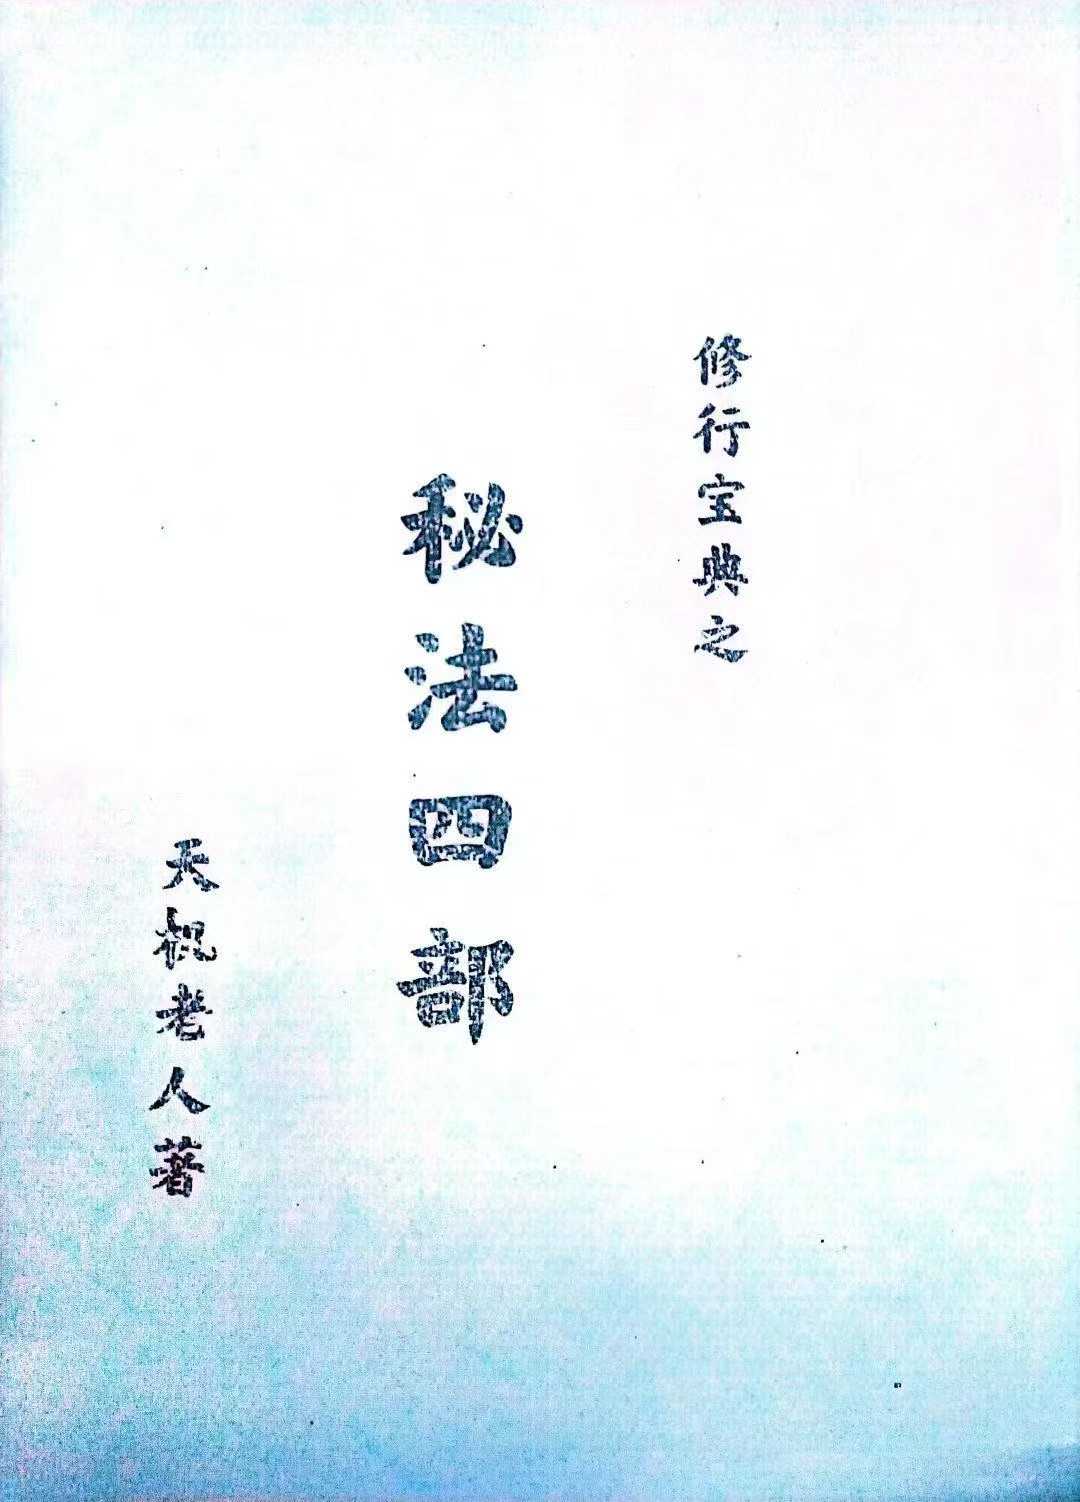 修行宝典之
秘法四部
天机老人著